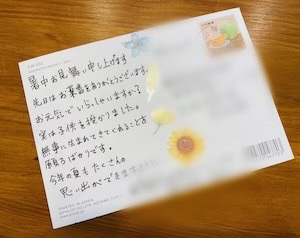 暑中お見舞い申し上げます
先日はお菓子をありがとうございます。
お元気でいらっしゃいますか?
実は子供を授かりました。
無事に生まれてきてくれることを
願うばかりです。
今年の夏もたくさんの
思い出ができますように